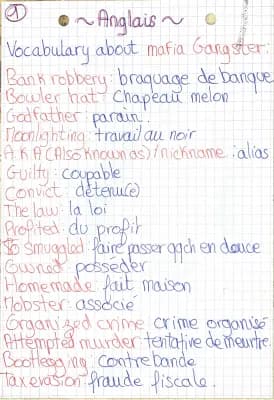 1
~ Anglais ~
Vocabulary about mafia Gangster:
Bank robbery: braquage de banque
Bowler hat: Chapeau melon
Godfather: parain.
Moonlighting: travail au noir
A.K.A (Also known as)/nickname: alias
Guilty: coupable
Convict: détenu(e)
The law: la loi
Profited: du profit
To smuggled: faire passer qqch en douce
Owned: posséder
Homemade: fait maison
Mobster: associé
Organized crime: crime organisé
Attempted murder: tentative de meurtre.
Bootlegging: contrebande
Tax evasion: fraude fiscale.